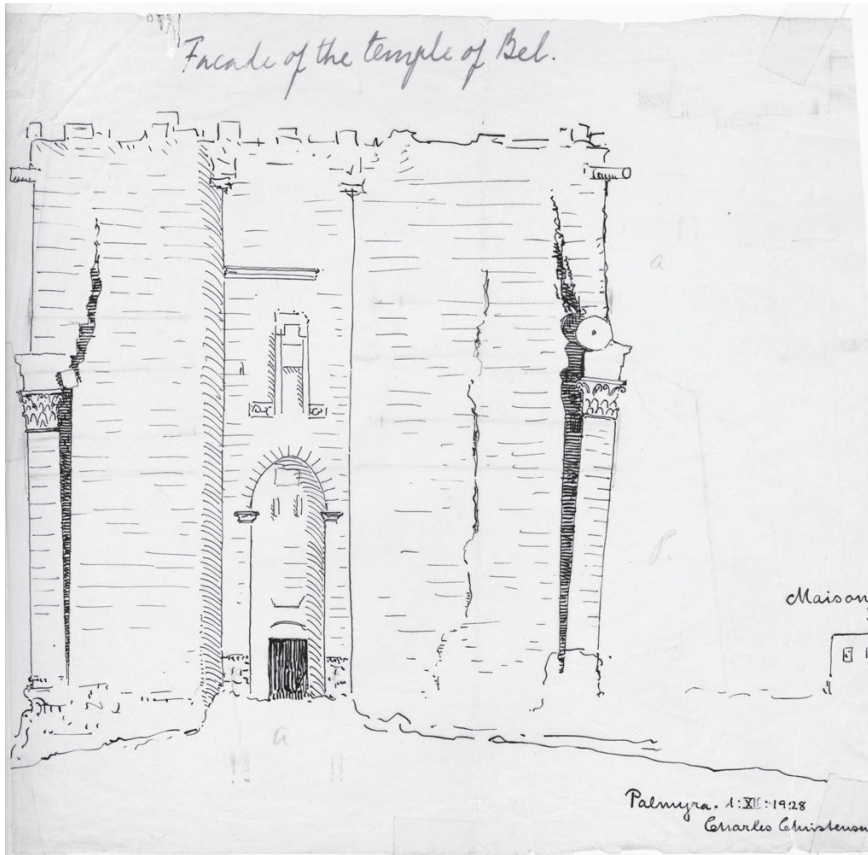 Facade of the temple of Bel.
Maison
Palmyra. 1:XII:1928
Charles Christensen